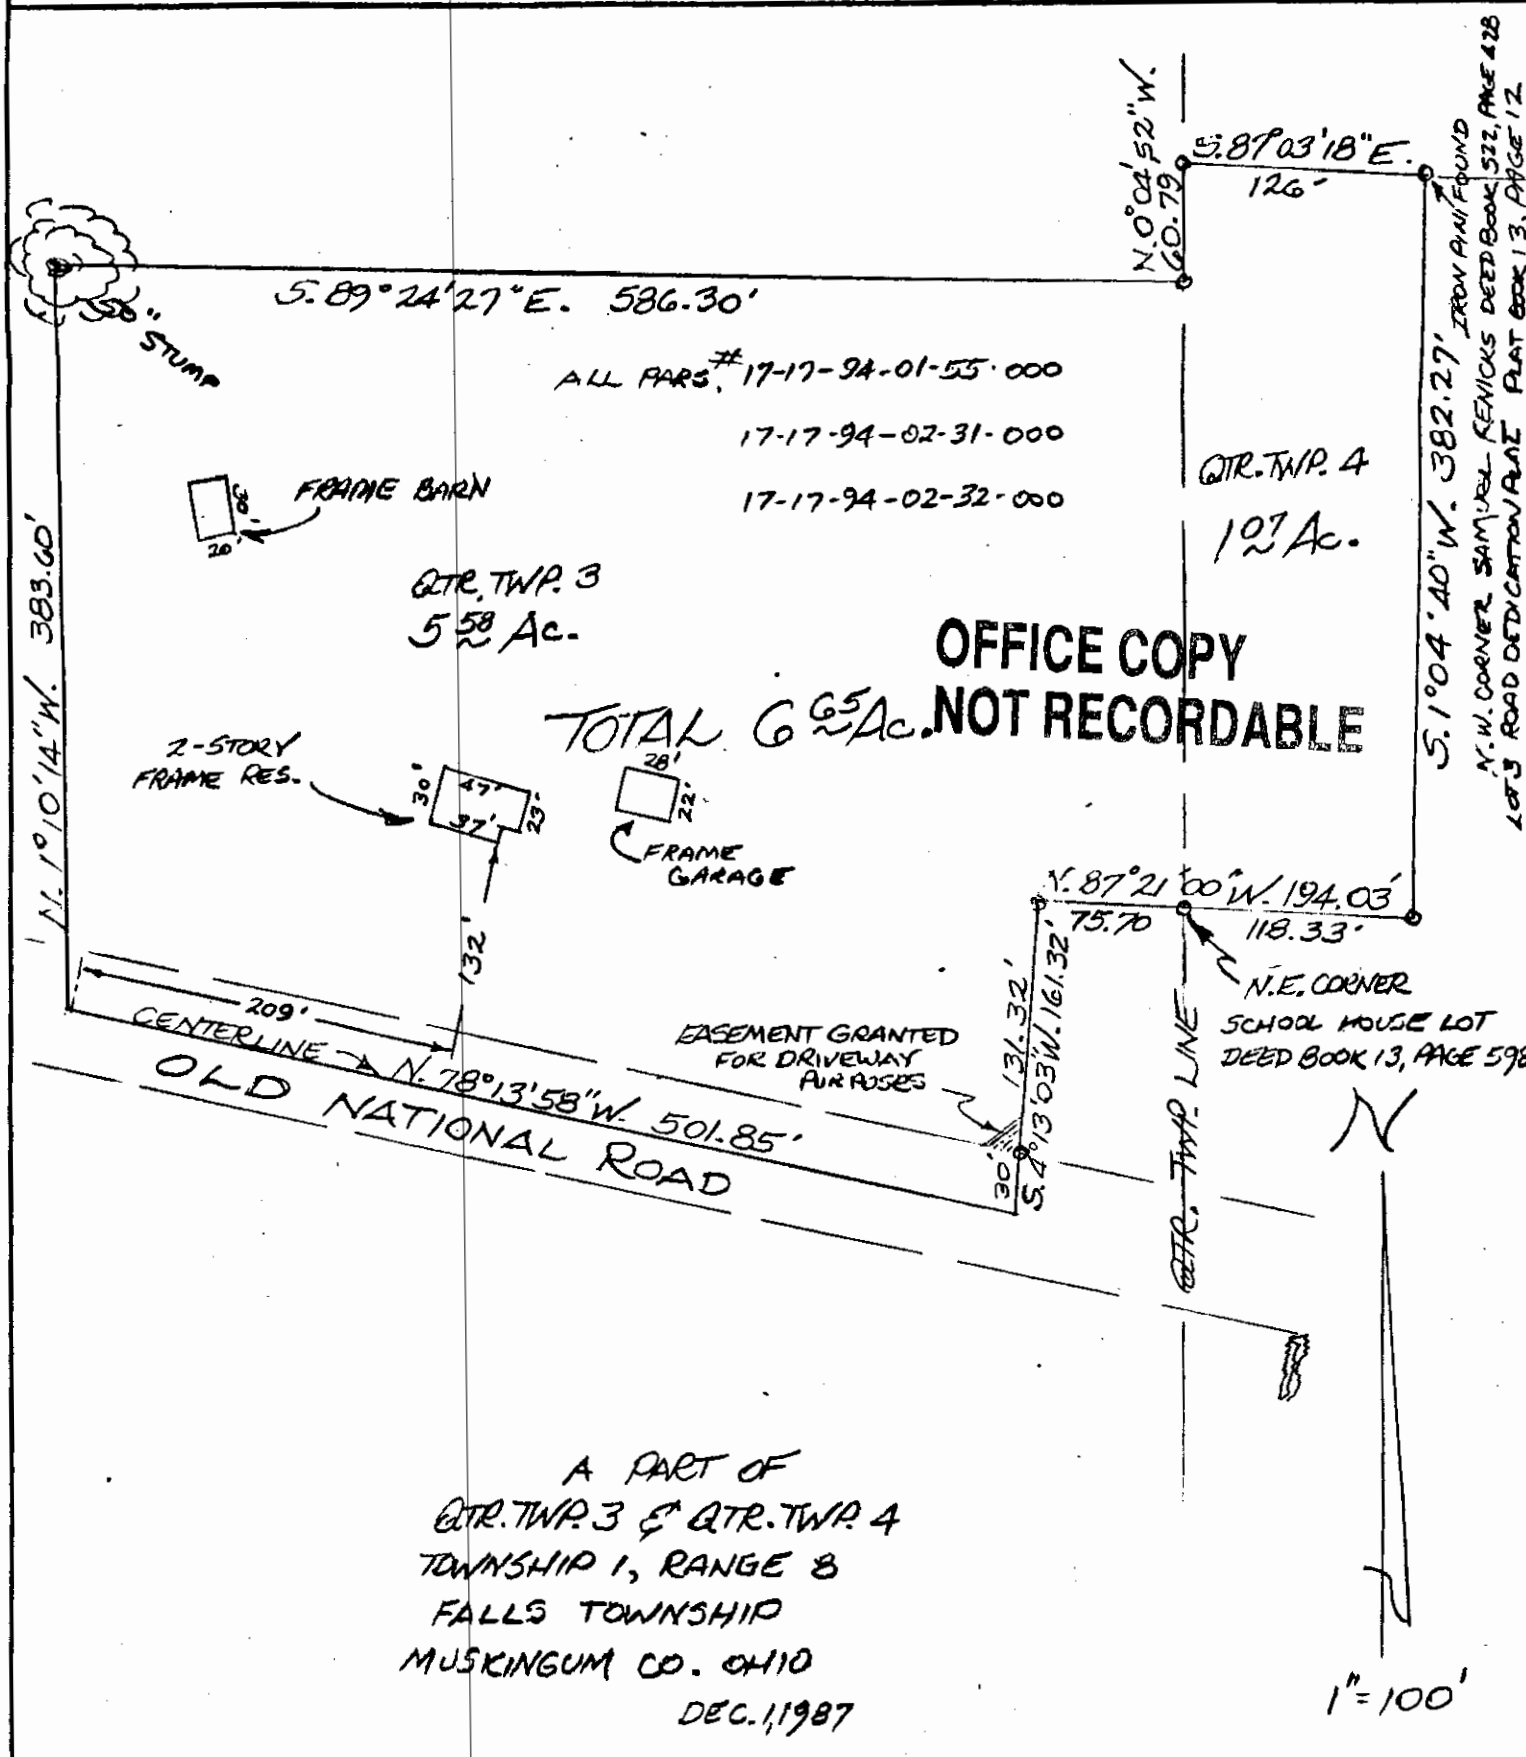 N.0°04'52"W.
60.79
S.87°03'18"E.
126'
IRON PIN FOUND
N.W. CORNER SAMUEL RENICKS DEED BOOK 522, PAGE 428
LOT 3 ROAD DEDICATION PLAT PLAT BOOK 13, PAGE 12
50"
STUMP
S.89°24'27"E. 586.30'
ALL PARS.# 17-17-94-01-55-000
17-17-94-02-31-000
17-17-94-02-32-000
QTR.TWP. 4
1 07 Ac.
FRAME BARN
30'
20'
QTR. TWP. 3
5 58 Ac.
OFFICE COPY
NOT RECORDABLE
TOTAL 6 65 Ac.
N.1°10'14"W. 383.60'
S.1°04'40"W. 382.27'
2-STORY
FRAME RES.
30'
47'
37'
23'
28'
22'
FRAME
GARAGE
132'
N.87°21'00"W. 194.03'
75.70
118.33'
N.E. CORNER
SCHOOL HOUSE LOT
DEED BOOK 13, PAGE 598
209'
CENTERLINE
N.78°13'58"W. 501.85'
OLD NATIONAL ROAD
EASEMENT GRANTED
FOR DRIVEWAY
PURPOSES
131.32'
30'
S.4°13'03"W. 161.32'
QTR. TWP. LINE
N
1"=100'
A PART OF
QTR.TWP.3 & QTR.TWP. 4
TOWNSHIP 1, RANGE 8
FALLS TOWNSHIP
MUSKINGUM CO. OHIO
DEC.1,1987